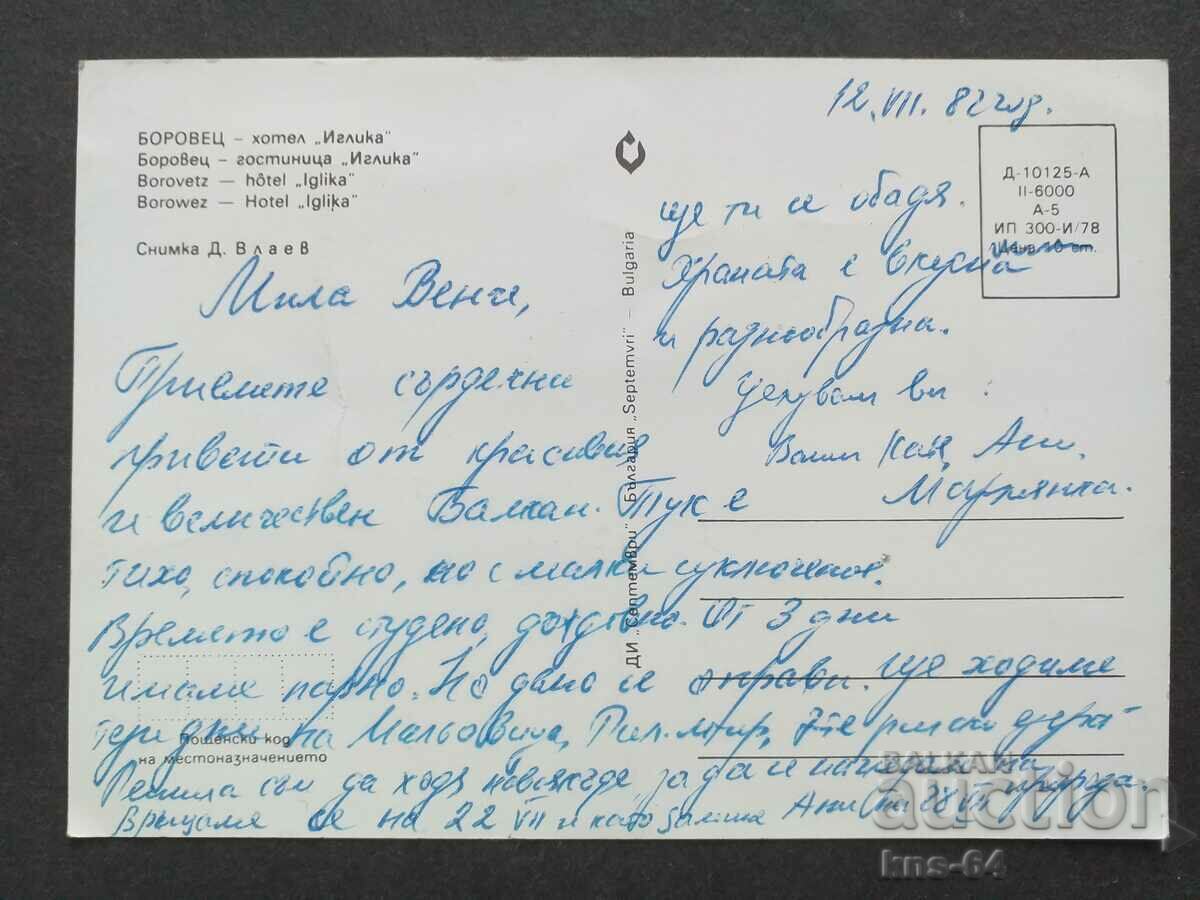 12.VII.82 год.
БОРОВЕЦ – хотел „Иглика"
Боровец – гостиница „Иглика"
Borovetz — hôtel „Iglika"
Borowez — Hotel „Iglika"
Снимка Д. Влаев
Д-10125-А
II-6000
А-5
ИП 300-И/78
Цена 10 ст.
Мила Вени,
Приемете сърдечни
привети от красивия
и величествен Балкан. Тук е
тихо, спокойно, но с малки изключения.
Времето е студено, дъждовно. От 3 дни
имаме парно. Но дано се оправи. Ще ходиме
тези дни на Мальовица, Рил. м-ир, 7-те рилски езера
Решила съм да ходя навсякъде, за да се на природа.
Връщаме се на 22 VII и като замине Ани на 28 VII
ще ти се обадя.
Храната е вкусна
и разнообразна.
Целувам ви:
Ваши Катя, Ани,
Марианка.
ДИ „Септември" – България „Septemvri" – Bulgaria
Пощенски код
на местоназначението
BALKAN
auction
kns-64